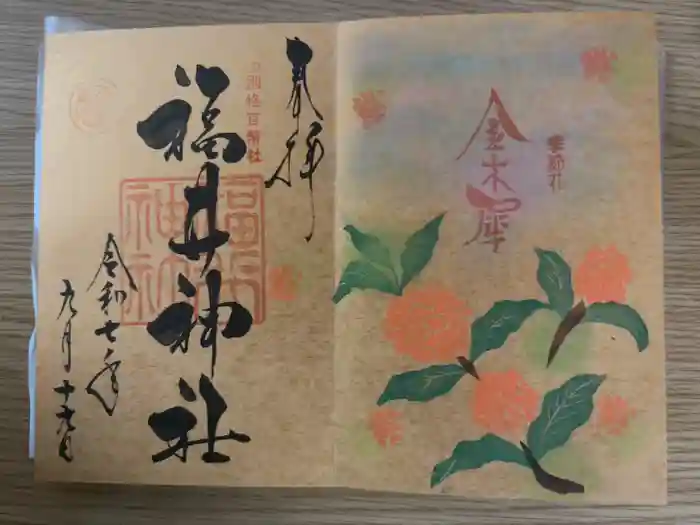 奉拝
旧別格官幣社
福井神社
福井神社
令和七年
九月十九日
金木犀